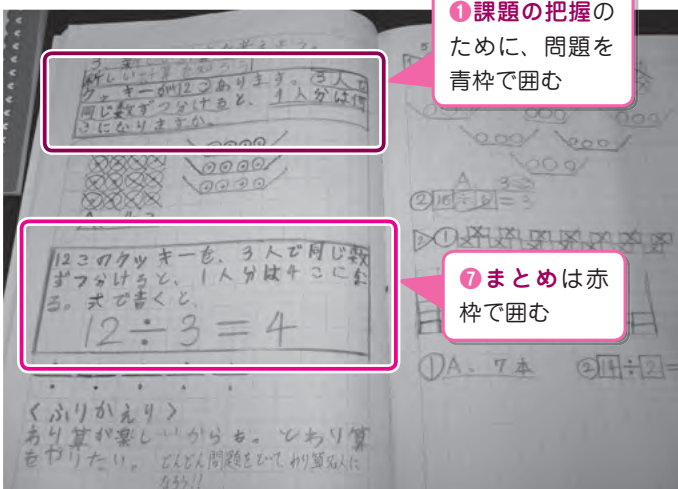 ❶課題の把握の
ために、問題を
青枠で囲む
新しい計算を
クッキーが12こあります。3人で
同じ数ずつ分けると、1人分は何
こになりますか。
12このクッキーを、3人で同じ数
ずつ分けると、1人分は4こにな
る。式で書くと、
12÷3=4
❼まとめは赤
枠で囲む
〈ふりかえり〉
わり算が楽しいからも。とわり算
をやりたい。
どんどん問題をといてわり算名人に
なろう!!
5
A 3こ
②15÷6=3
①A、7本
②14÷2=